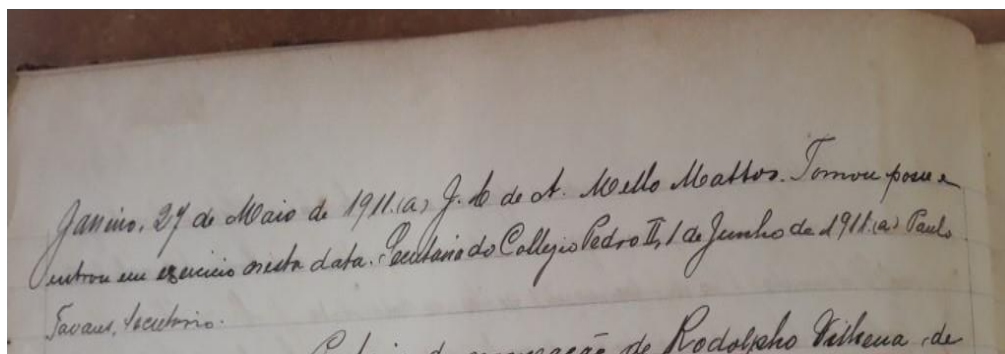 Janeiro, 27 de Maio de 1911.(a) J. C de A. Mello Mattos. Tomou posse e
entrou em exercicio nesta data. Secretaria do Collegio Pedro II, 1 de Junho de 1911.(a) Paulo
Tavares, Secretario.
de nomeação de Rodolpho Vilhena de